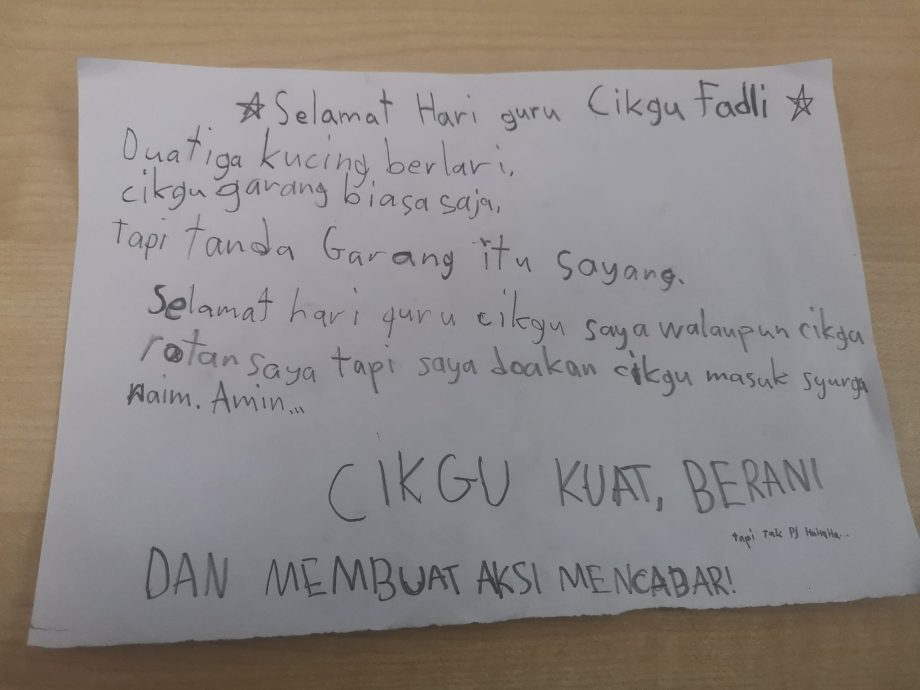 ☆ Selamat Hari guru Cikgu Fadli ☆
Duatiga kucing berlari,
cikgu garang biasa saja,
tapi tanda Garang itu sayang.
Selamat hari guru cikgu saya walaupun cikgu
rotan saya tapi saya doakan cikgu masuk syurga
Naim. Amin...
CIKGU KUAT, BERANI
tapi tak PJ HaHaHa..
DAN MEMBUAT AKSI MENCABAR!